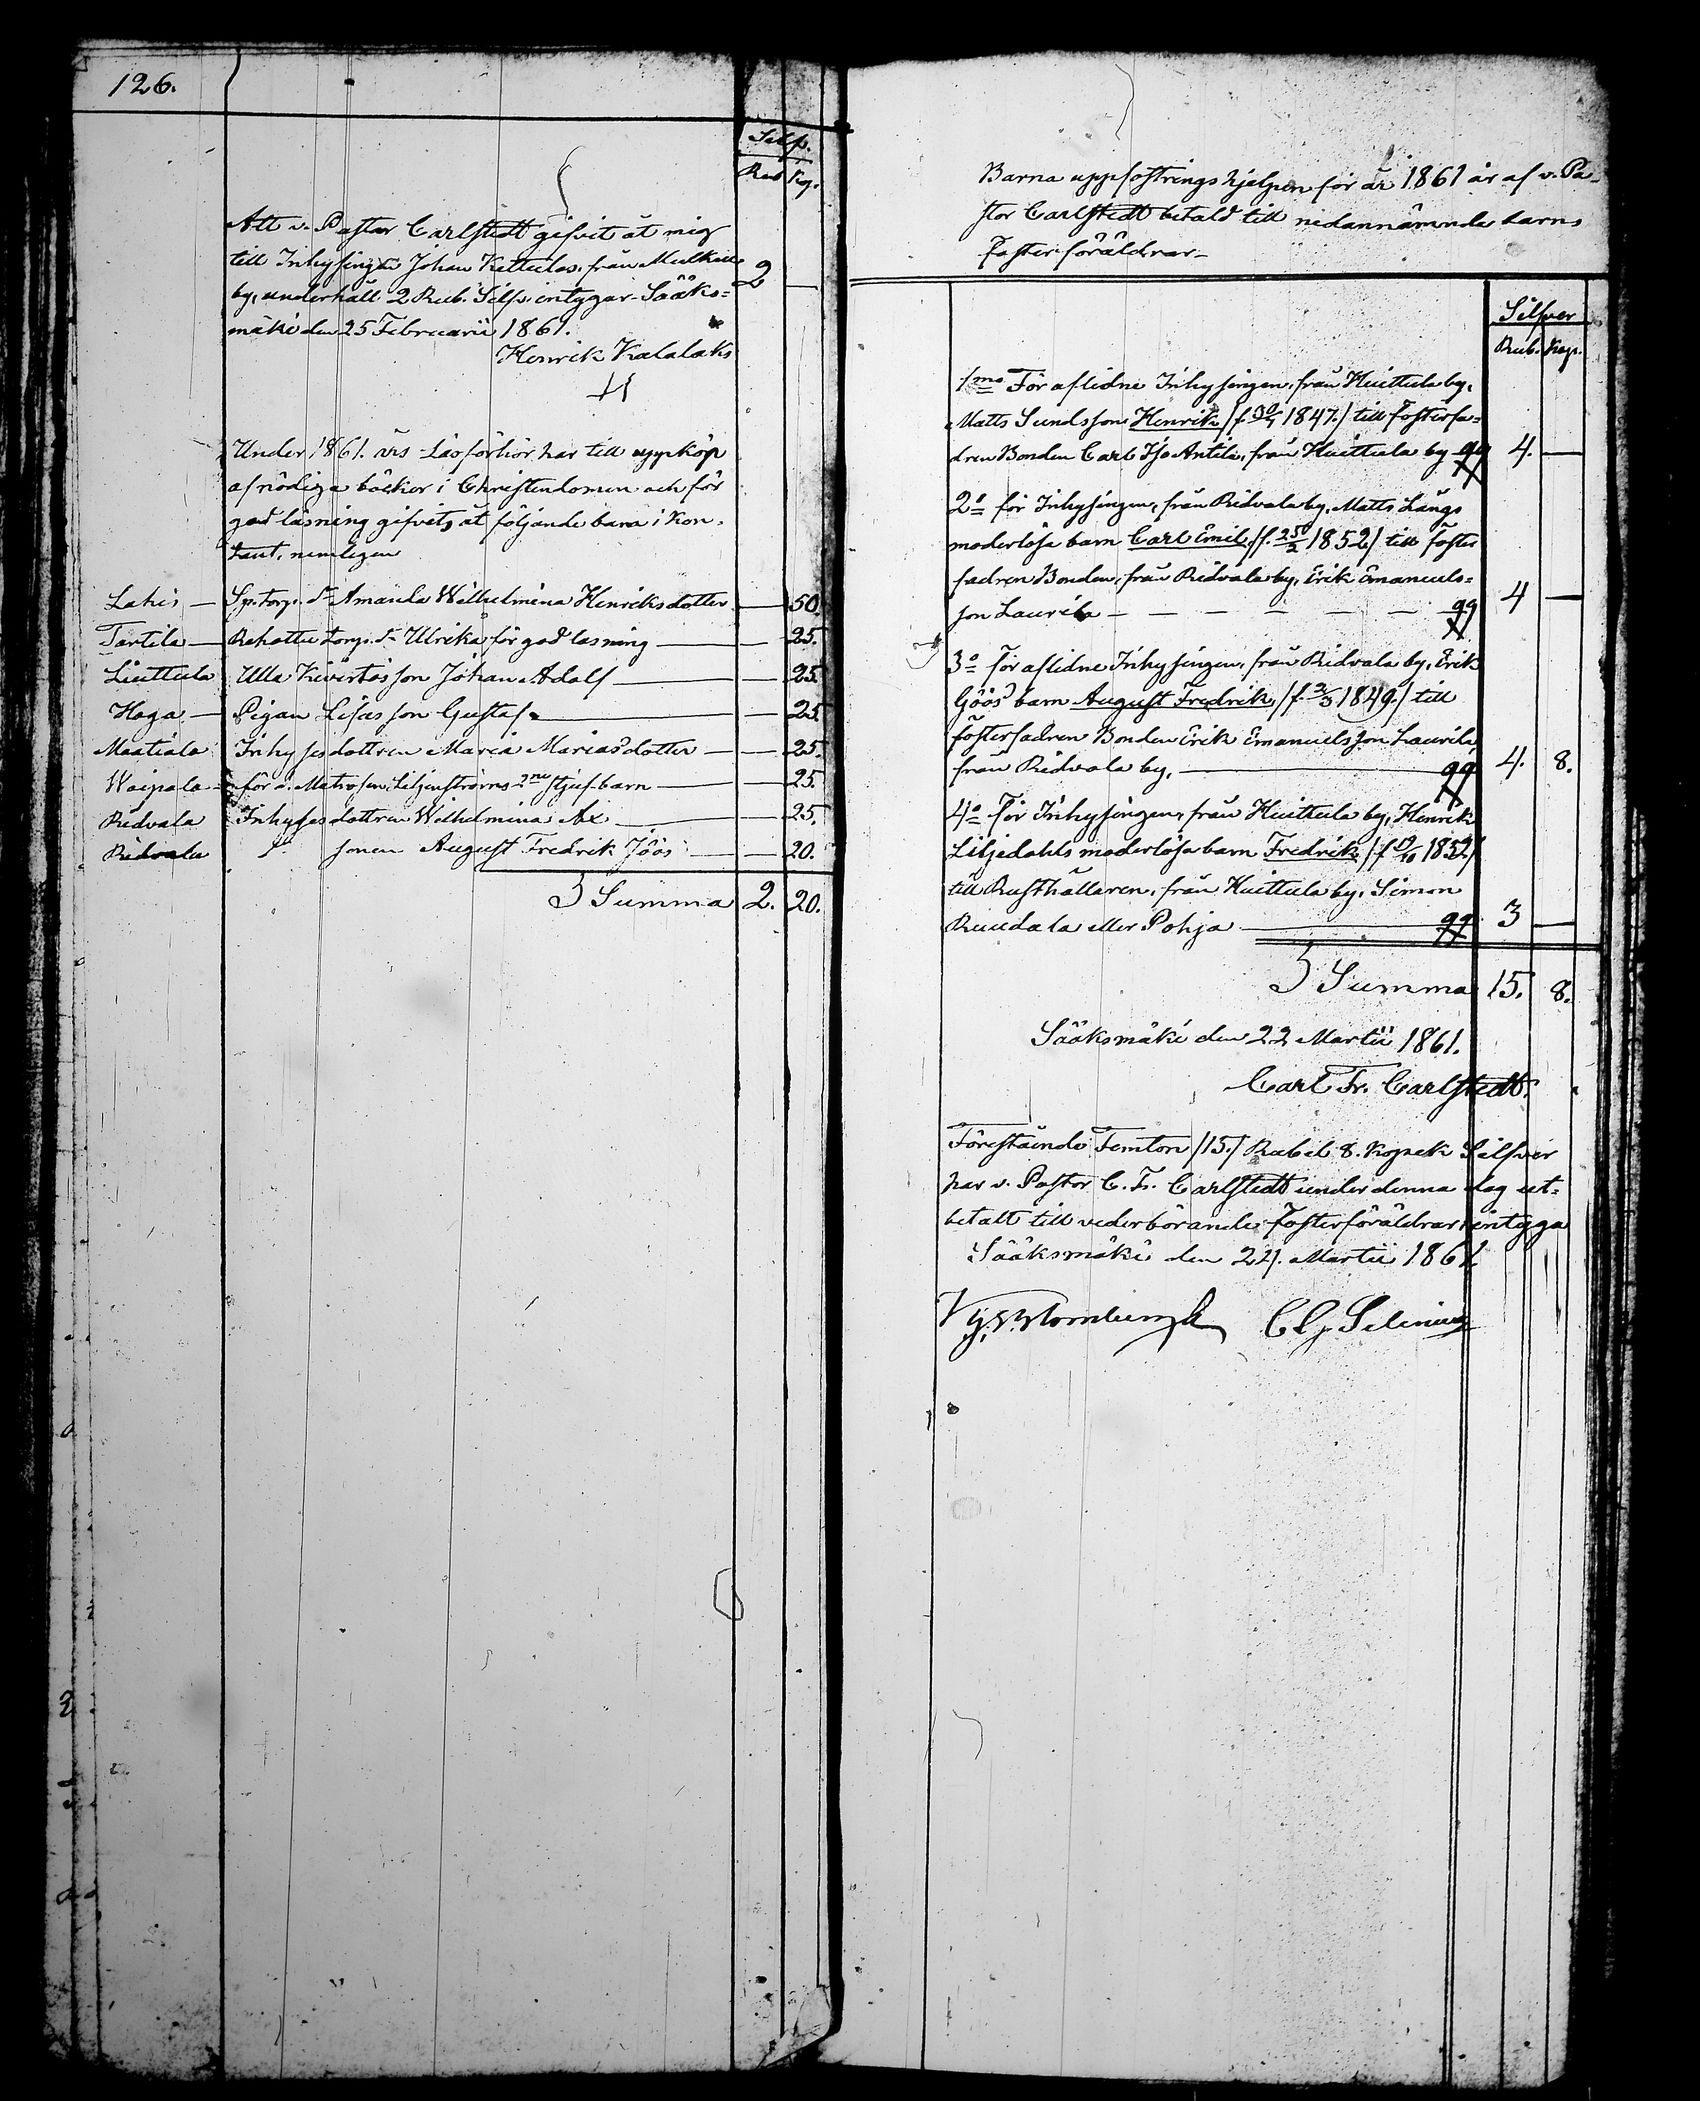 126.
Silfv.
Rub Kop.
Att v. Pastor Carlstedt gifvit åt mig
till Inhysingen Johan Kettulas, från
by, underhåll 2 Rub. Silfv. intygar. Sääks= 2 —
mäki den 25 Februarii 1861.
Henrik Kalalaks
Under 1861 års Läseförhör har till uppköp
af nödiga böcker i Christendomen och för
god läsning gifvits åt följande barn i Kon-
tant, nemligen
Lahis — Sp. torp. dr Amanda Wilhelmina Henriksdotter — 50.
Tarttila — torp. dr Ulrika för god läsning — 25.
Liuttula Ulla son Johan Adolf — 25
Haga — Pigan Lisas son Gustaf — 25
Maatiala Inhysesdottren Maria Mariasdotter — 25.
Waipala för d. Matrosen Liljenströms 2ne stjufbarn — 25.
Ridvala Inhysesdottren Wilhelmina Ax — 25.
Ridvala d:o sonen August Fredrik Jöös — 20.
Summa 2. 20.
Barna uppfostringshjelpen för år 1861 är af v. Pa-
stor Carlstedt betald till nedannämnda barns
Fosterföräldrar
Silfver
Rub. Kop.
1mo För aflidne Inhysingen, från Huittula by,
Matts Sunds son Henrik /f. 1847./ till fosterfa=
dren Bonden Carl Antila, från Huittula by 4. —
2o för Inhysingen, från Ridvala by, Matts Längs
moderlösa barn Carl Emil /f. 25/2 1852/ till foster
fadren Bonden, från Ridvala by, Erik Emanuels=
son Laurila — — — — — 4 —
3o För aflidne Inhysingen, från Ridvala by, Erik
Jöös barn August Fredrik, /f. 2/3 1849./ till
fosterfadren Bonden Erik Emanuelsson Laurila,
från Ridvala by, — 4. 8.
4o För Inhysingen, från Huittula by, Henrik
Liljedahls moderlösa barn Fredrik /f 19/10 1852/
till Rusthållaren, från Huittula by, Simon
Ruudala eller Pohja — 3 —
Summa 15. 8.
Sääksmäki den 22 Martii 1861.
Carl Fr. Carlstedt.
Förestående Femton /15./ Rubel 8. Kopek Silfver
har v. Pastor C. Fr. Carlstedt under denna dag ut=
betalt till vederbörande fosterföräldrar, intyga
Sääksmäki den 22. Martii 1861.